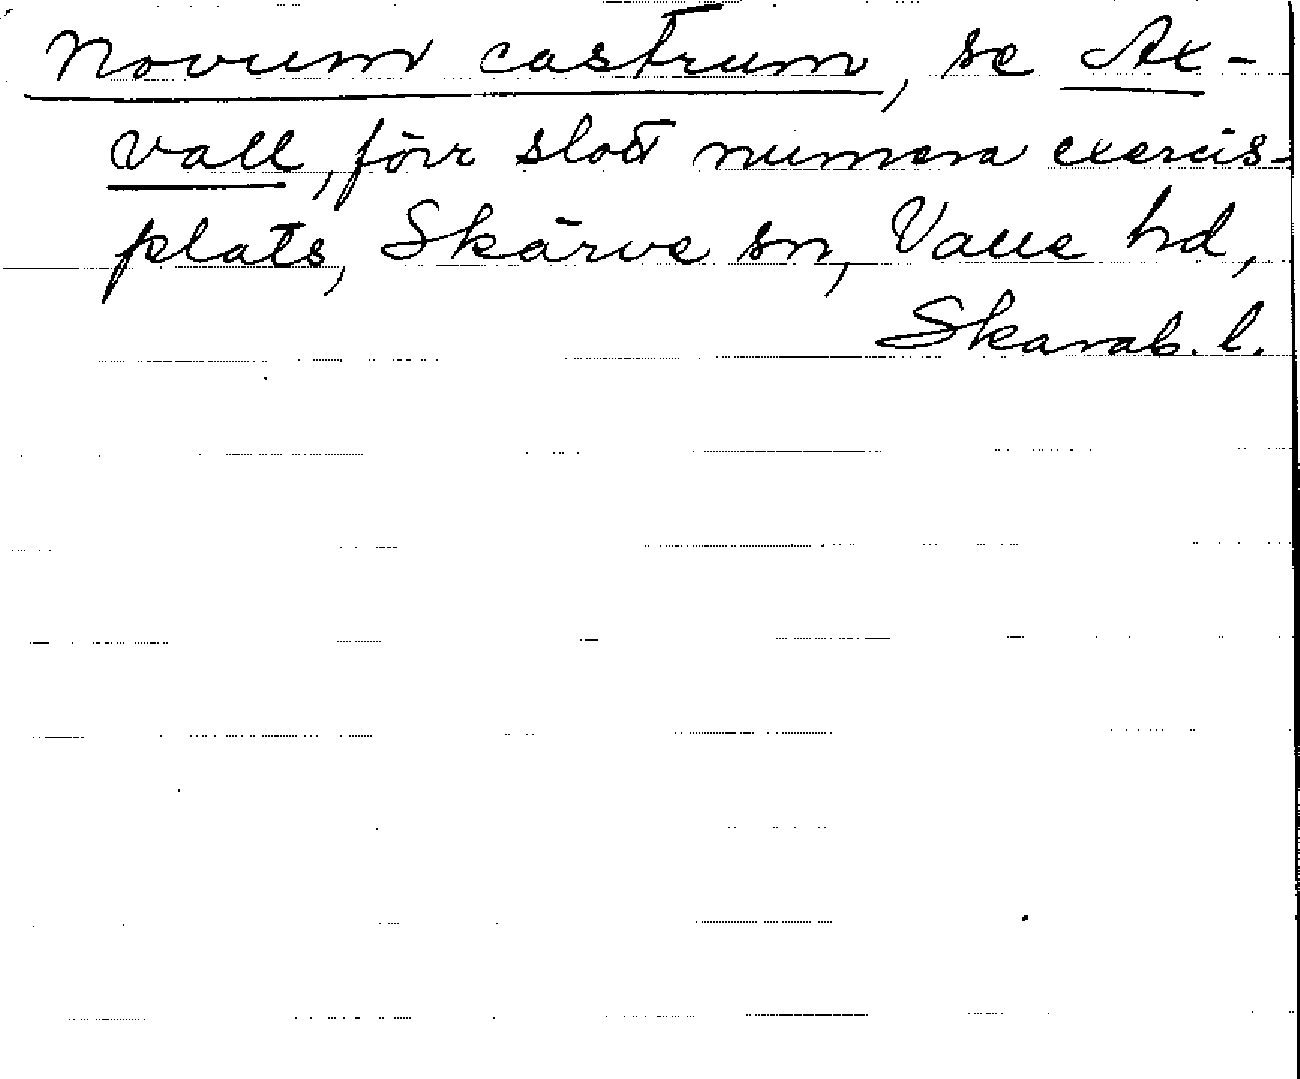 Novum castrum, se Ax-
vall, förr slott numera exercis-
plats, Skärve sn, Valle hd,
Skarab. l.